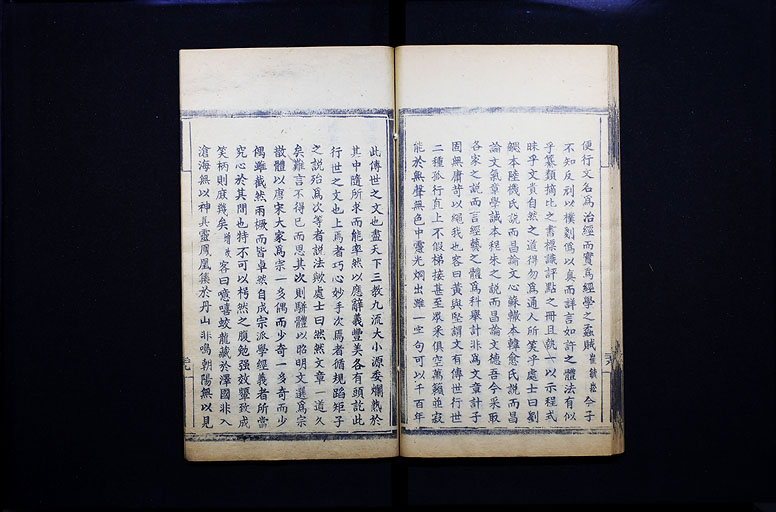 便行文名爲治經而實爲經學之蟊賊崔銑松今子
不知反别以樸刻僞以真而詳言如許之體法有似
乎纂類摘比之書標識評點之冊且執一以示程式
昧乎文貴自然之道得勿爲通人所笑乎處士曰劉
勰本陸機氏説而昌論文心蘇轍本韓愈氏説而昌
論文氣章學誠本程朱之説而昌論文德吾今采取
各家之説而言經藝之體爲科舉計非爲文章計子
固無庸苛以繩我也客曰黄與堅謂文有傳世行世
二種孤行直上不假梯接甚至衆采俱空萬籟並寂
能於無聲無色中靈光炯出雖一字句可以千百年
此傳世之文也盡天下三教九流大小源委爛熟於
其中隨所求而能率然以應辭義豐美各有頭訖此
行世之文也上焉者巧心妙手次焉者循規蹈矩子
之説殆爲次等者説法歟處士曰然然文章一道久
矣難言不得已而思其次則駢體以昭明文選爲宗
散體以唐宋大家爲宗一多偶而少奇一多奇而少
偶雖截然兩橛而皆卓然自成宗派學經義者所當
究心於其間也特不可以枵然之腹勉强效顰致成
笑柄則庶幾矣客曰噫嘻蛟龍藏於澤國非入
滄海無以神其靈鳳凰集於丹山非鳴朝陽無以見